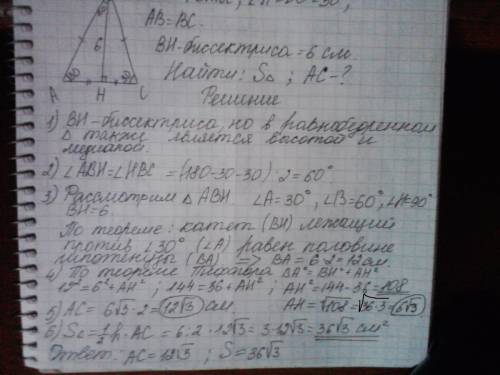 ∠A=∠C=30°,
AB=BC.
BH-биссектриса=6 см.
Найти: S△ ; AC-?
6
30 30
A H C
Решение
1) BH-биссектриса, но в равнобедренном
△ также является высотой и
медианой.
2) ∠ABH=∠HBC =(180-30-30):2=60°
3) Рассмотрим △ ABH ∠A=30°, ∠B=60°, ∠H=90°
BH=6.
По теореме: катет (BH) лежащий
против ∠30° (∠A) равен половине
гипотенузы (BA) => BA = 6·2=12 см.
4) По теореме Пифагора BA²=BH²+AH²
12²=6²+AH² ; 144=36+AH² ; AH²=144-36=108
AH=√108=√36·3=6√3
5) AC= 6√3·2=12√3 см.
6) S△=1/2 h·AC = 6:2·12√3= 3·12√3=36√3 см²
Ответ: AC=12√3 ; S=36√3